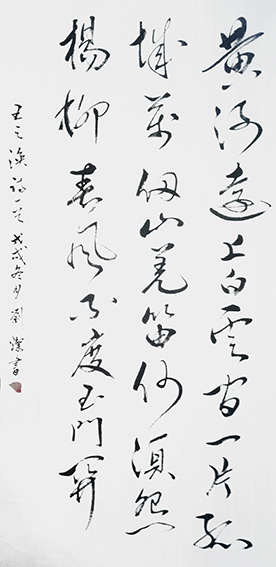 黄河遠上白雲間一片孤
城萬仞山羌笛何須怨
楊柳春風不度玉門關
王之渙詩一首 戊戌冬月 劉潔書